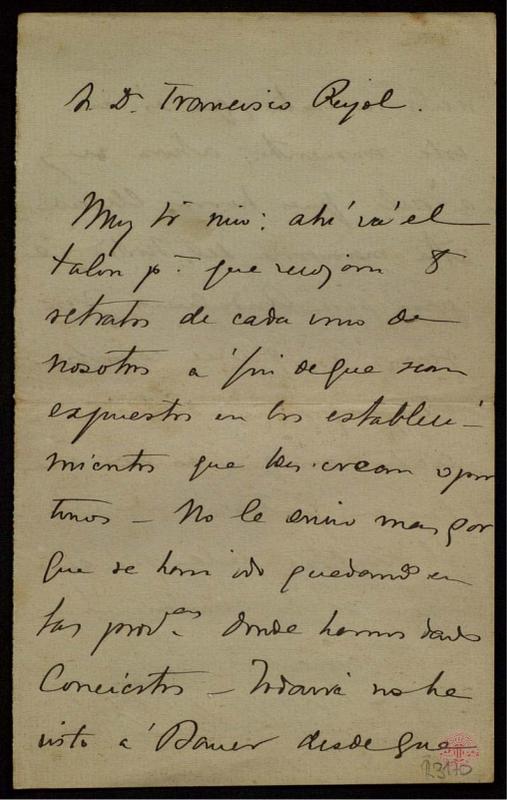 Sr Dn Francisco Pujol.
Muy Sr mio: ahí vá el
talon pa que recojan 8
retratos de cada uno de
nosotros a fin de que sean
expuestos en los estableci-
mientos que Vds. crean opor
tunos - No le envio mas por
que se han ido quedando en
las provas donde hemos dado
Conciertos - Todavia no he
visto á Bauer desde que
R3170